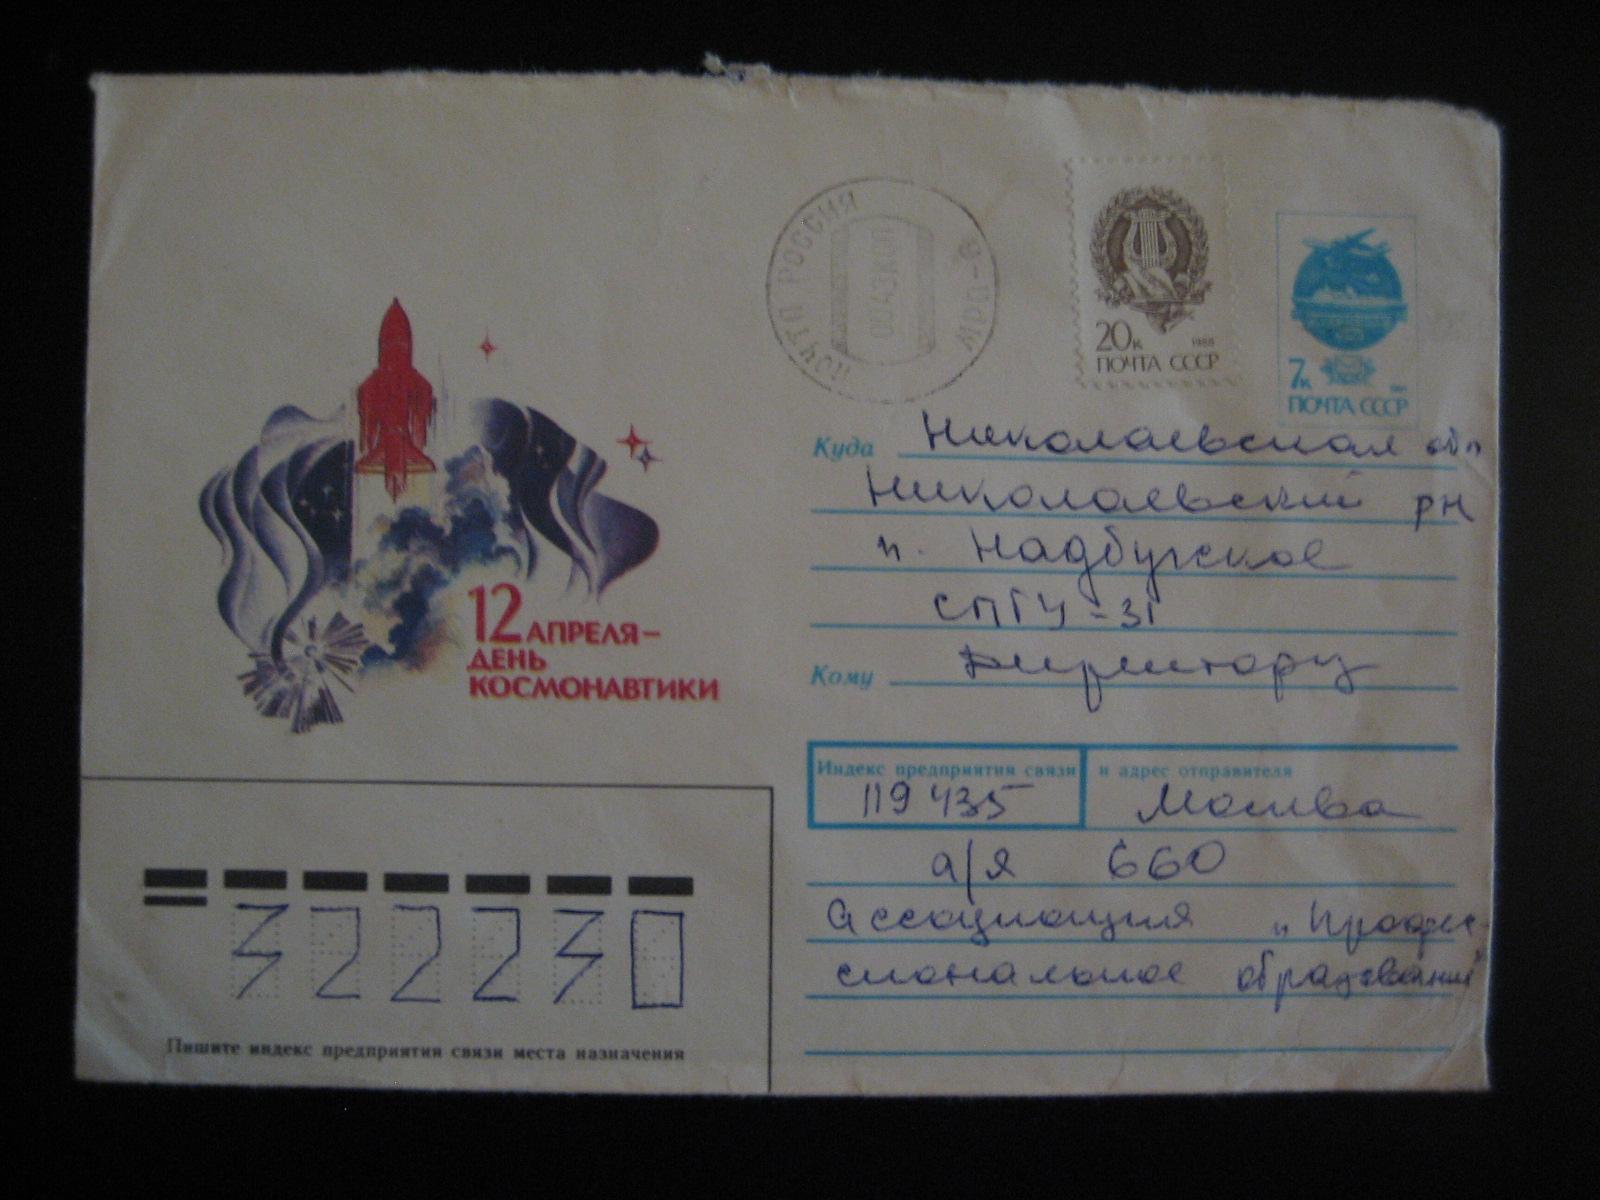 12 АПРЕЛЯ–
ДЕНЬ
КОСМОНАВТИКИ
ПОЧТА РОССИЯ
20к 1988
ПОЧТА СССР
7к
ПОЧТА СССР
Куда Николаевская обл
Николаевский рн
п. Надбугское
СПТУ-31
Кому Директору
Индекс предприятия связи и адрес отправителя
119435 Москва
а/я 660
Ассоциация "Профес-
сиональное образование"
322230
Пишите индекс предприятия связи места назначения